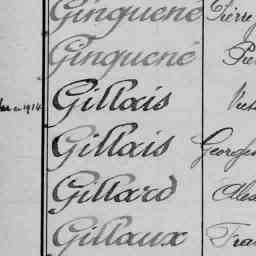 Ginguené Pierre
Ginguené Pie
Gillais Vict
Gillais Georges
Gillard Alex
Gillaux Fra